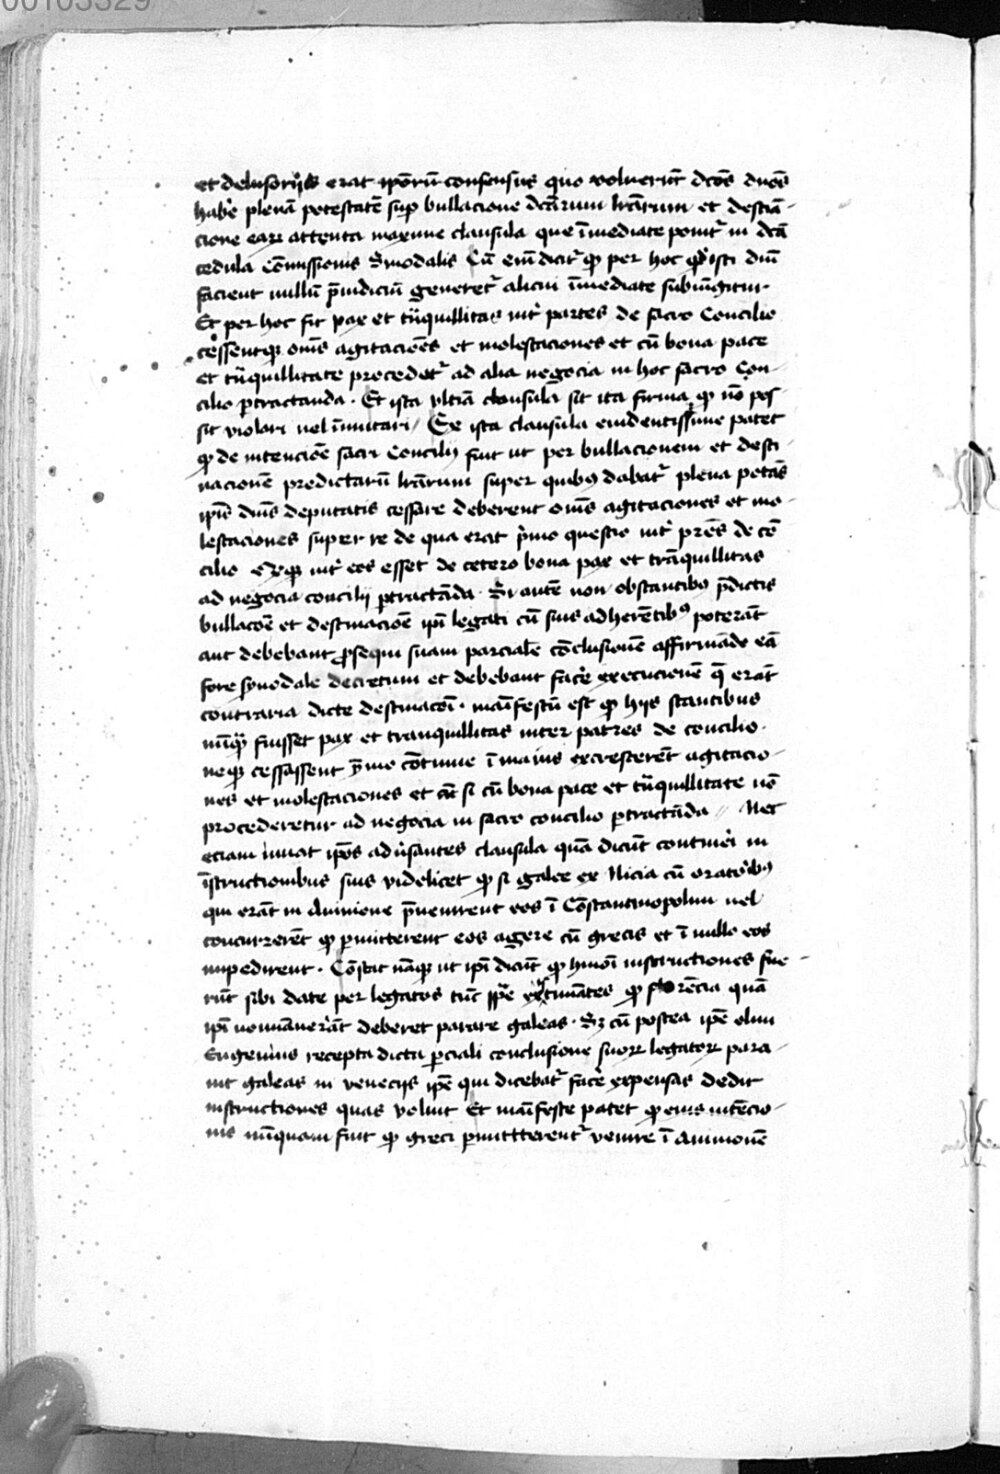 00105329
et delusorijs erat ip̄oru᷑ consensus quo voluerūt dc̄os dn̄os
hab'e plenā potestatē sup bullacione dc̄arum lr̄arum et destīa-
cione earꝝ attenta maxime clausula que īmediate ponit᷑ in dc̄a
cedula Cōmissionis Sinodalis Cū em̄ dicit᷑ ꝙ per hoc qd' isti dn̄i
facient nullū p̄iudiciū generet᷑ alicui īmediate subiūgitur
Et per hoc fit pax et trāquillitas int' partes de sacro Concilio
cessentqꝫ om̄es agitacioēs et molestaciones et cū bona pace
et trāquillitate procedet᷑ ad alia negocia in hoc sacro Con-
cilio ꝑtractanda · Et ista vltīa clausula sit ita firma ꝙ nō pos-
sit violari vel īmutari / Ex ista clausula euidentissime patet
ꝙ de intencioē sacri Concilij fuit ut per bullacionem et desti
nacionē predictarū lr̄arum super quibꝰ dabat᷑ plena potās
ip̄is dn̄is deputatis cessare deberent om̄s agitaciones et mo-
lestaciones super re de qua erat p'mo questio int' p̄res de cō
cilio Atqꝫ int' eos esset de cetero bona pax et trāquillitas
ad negocia concilij ꝑtractāda · Si autē non obstantibꝰ p̄dictis
bullacōē et destinacioē ip̄i legati cū suis adherētibꝰ poterāt
aut debebant ꝓsequi suam parcialē cōclusionē affirmādo eā
fore synodale decretum et debebant fac'e execucionē q̄ erāt
contraria dicte destinacōi · māifestū est ꝙ hijs stantibus
nūqꝫ fuisset pax et tranquillitas inter patres de concilio ·
neqꝫ cessassent ymo cōtinue ī maius excresterēt agitacio-
nes et molestaciones et cū si cū bona pace et trāquillitate nō
procederetur ad negocia in sacro concilio ꝑtractāda // Nec
eciam iuuat ip̄os aduersantes clausula quā dicūt contineri in
īstructionibus suis videlicet ꝙ si galee ex Nicia cū oratoribꝰ
qui erāt in Auinione p̄uenirent eos ī Cōstantinopolim vel
concurrerēt ꝙ ꝑmitterent eos agere cū grecis et ī nullo eos
impedirent · Cōstat nāqꝫ ut ip̄i dicūt ꝙ hmōi instructiones fue-
rūt sibi date per legatos tūc ip̄e extimātes ꝙ florēcia quā
ip̄i noīauerāt deberet parare galeas · Sꝫ cū postea ip̄e olim
Eugenius recepta dicta ꝑciali conclusione suoꝝ legatoꝝ para-
uit galeas in venecijs ip̄e qui dicebat᷑ fac'e expensas dedit
instructiones quas voluit Et māifeste patet ꝙ eius intēcio-
nis nūquam fuit ꝙ greci ꝑmittterent᷑ venire ī Auinionē